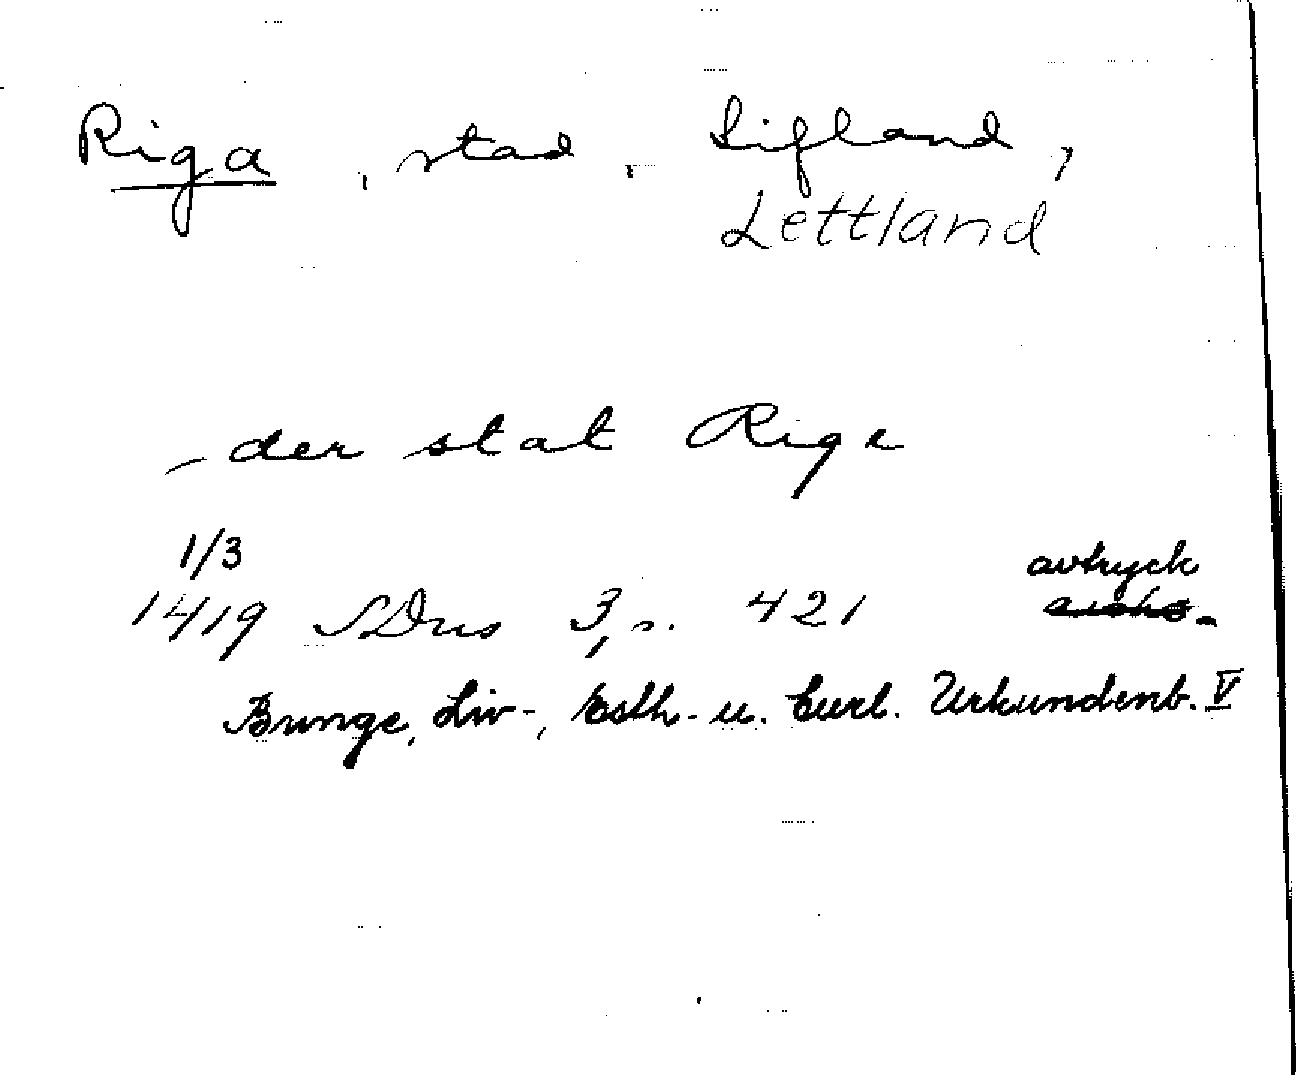 Riga, stad, Lifland,
Lettland
- der stat Rige
1/3
avtryck
1419 SDns 3, s. 421
Bunge, Liv-, Esth- u. Curl. Urkundenb. V